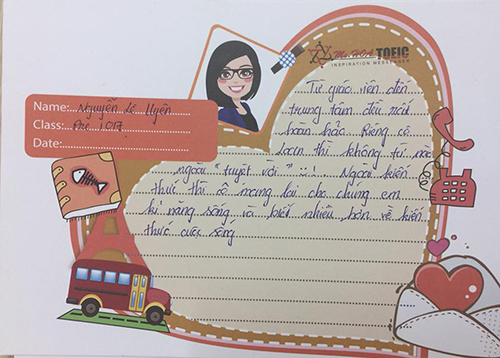 Ms HOA TOEIC
INSPIRATION MESSENGER
Name: Nguyễn Lê Uyên
Class: Pre 1017
Date:
Từ giáo viên đến
trung tâm đều rất
hoàn hảo. Riêng cô
Loan thì không từ nào
ngoài "tuyệt vời" ... Ngoài kiến
thức thì cô mang lại cho chúng em
kĩ năng sống và biết nhiều hơn về kiến
thức cuộc sống